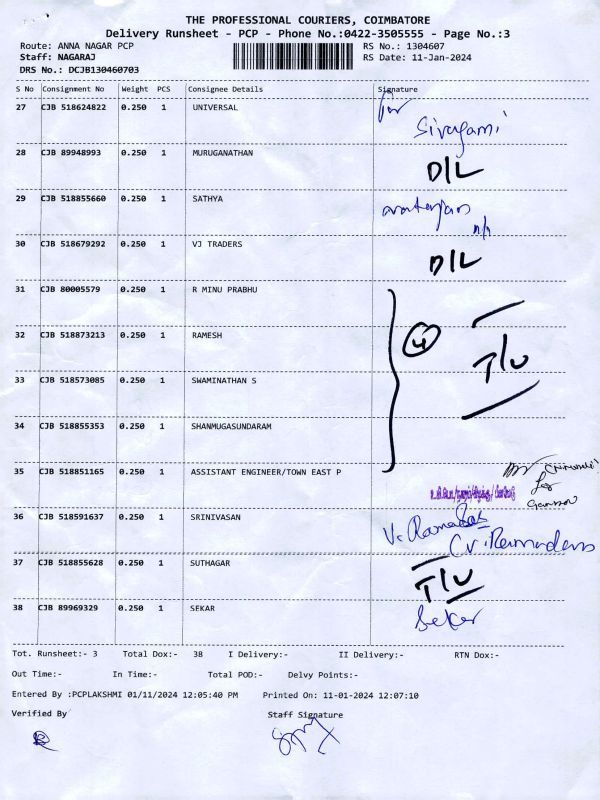 THE PROFESSIONAL COURIERS, COIMBATORE
Delivery Runsheet - PCP - Phone No.:0422-3505555 - Page No.:3
Route: ANNA NAGAR PCP RS No.: 1304607
Staff: NAGARAJ RS Date: 11-Jan-2024
DRS No.: DCJB130460703
S No Consignment No Weight PCS Consignee Details Signature
27 CJB 518624822 0.250 1 UNIVERSAL for Sivagami
28 CJB 89948993 0.250 1 MURUGANATHAN D/L
29 CJB 518855660 0.250 1 SATHYA
30 CJB 518679292 0.250 1 VJ TRADERS D/L
31 CJB 80005579 0.250 1 R MINU PRABHU
32 CJB 518873213 0.250 1 RAMESH 4 T/U
33 CJB 518573085 0.250 1 SWAMINATHAN S
34 CJB 518855353 0.250 1 SHANMUGASUNDARAM
35 CJB 518851165 0.250 1 ASSISTANT ENGINEER/TOWN EAST P
36 CJB 518591637 0.250 1 SRINIVASAN V. Ramadas
37 CJB 518855628 0.250 1 SUTHAGAR T/U
38 CJB 89969329 0.250 1 SEKAR Sekar
Tot. Runsheet:- 3 Total Dox:- 38 I Delivery:- II Delivery:- RTN Dox:-
Out Time:- In Time:- Total POD:- Delvy Points:-
Entered By :PCPLAKSHMI 01/11/2024 12:05:40 PM Printed On: 11-01-2024 12:07:10
Verified By Staff Signature